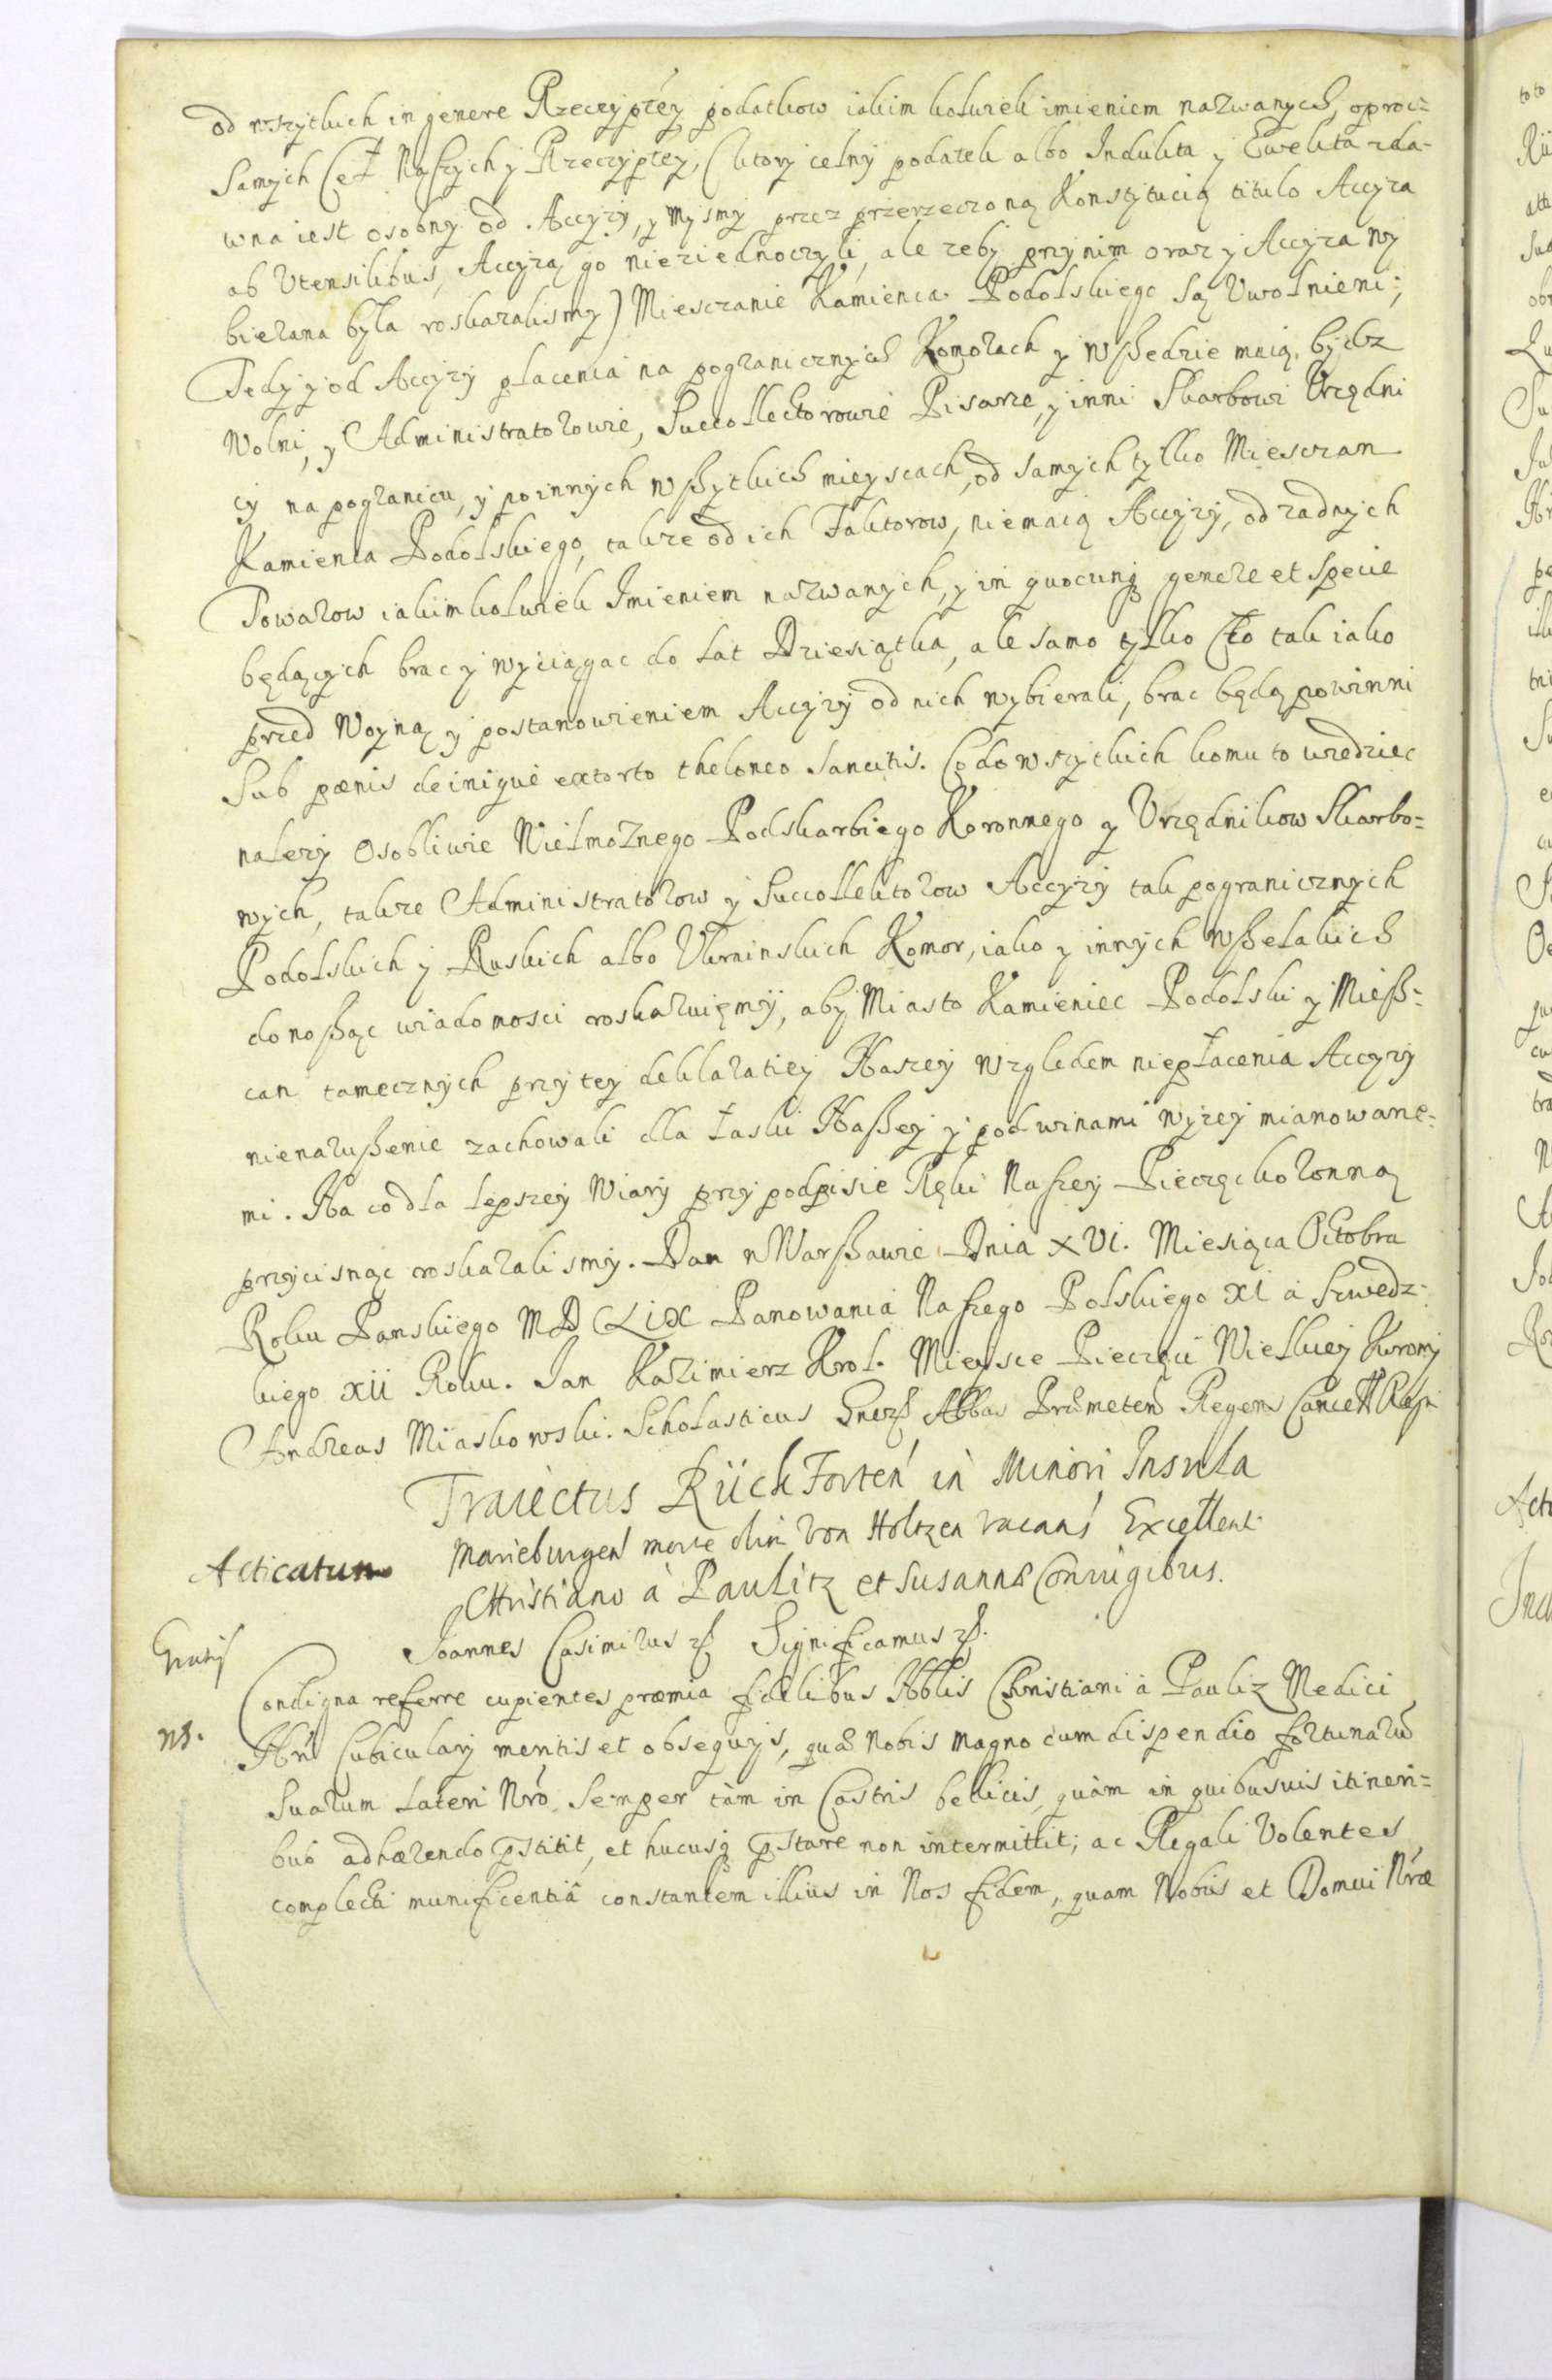 od wszytkich in genere Rzeczyptey podatkow iakimkolwiek imieniem nazwanych, oprocz
samych Ceł Naszych y Rzeczyptey, (ktory celny podatek albo Indukta y Ewekta zda-
wna iest osobny od Accyzy, y Mysmy przez przerzeczoną Konstytucią titulo Accyza
ab Utensilibus, Accyzą go nieziednoczyli, ale zeby przy nim oraz y Accyza wy
bierana była roskazalismy) Miesczanie Kamienca Podolskiego są Uwolnieni;
Tedy y od Accyzy płacenia na pogranicznych Komorach y wszedzie maią bydz
Wolni, y Administratorowie, Succollectorowie Pisarze, y inni Skarbowi Urzędni
cy na pograniczu, y po innych wszytkich mieyscach, od samych tylko Miesczan
Kamienca Podolskiego, takze od ich Faktorow, niemaią Accyzy, od zadnych
Towarow iakimkolwiek Imieniem nazwanych, y in quocunq genere et specie
będących brac y wyciągac do lat Dziesiątka, ale samo tylko Cło tak iako
przed Woyną y postanowieniem Accyzy od nich wybierali, brac będą powinni
Sub pænis de inique extorto theloneo sancitis. Co do wszytkich komu to wiedziec
nalezy Osobliwie Wielmoznego Podskarbiego Koronnego y Urzędnikow Skarbo=
wych, takze Administratorow y Succollektorow Accyzy tak pogranicznych
Podolskich y Ruskich albo Ukrainskich Komor, iako y innych wszelakich
donosząc wiadomosci roskazuięmy, aby Miasto Kamieniec Podolski y Miesz=
can tamecznych przy tey deklaratiey Naszey wzgledem niepłacenia Accyzy
nienaruszenie zachowali dla łaski Naszey y pod winami wyzey mianowane-
mi. Na co dla lepszey Wiary przy podpisie Ręki Naszey Pieczęc koronną
przycisnąc roskazalismy. Dan w Warszawie Dnia XVI. Miesiąca Octobra
Roku Panskiego MDCLIX Panowania Naszego Polskiego XI a Szwedz-
kiego XII Roku. Jan Kazimierz Krol. Mieysce Pieczęci Wielkiey Koronny
Andreas Miaskowski. Scholasticus Abbas Præmeten Regens Cancell Regni
Traiectus Rück Forten in Minori Insula
Acticatum
Marieburgen morte olim Von Holtzen vacans Excellent.
Christiano à Paulitz et Susannæ Coniugibus.
Joannes Casimirus Significamus
Condigna referre cupientes præmia fidelibus Nblis Christiani à Pauliz Medici
ns.
Nri Cubicularij meritis et obsequijs, quæ Nobis magno cum dispendio fortunarū
Suarum lateri Nro semper tàm in Castris bellicis, quàm in quibusvis itineri=
bus adhærendo pstitit, et hucusq pstare non intermittit; ac Regali Volentes
complecti munificentiâ constantem illius in Nos fidem, quam Nobis et Domui Nræ